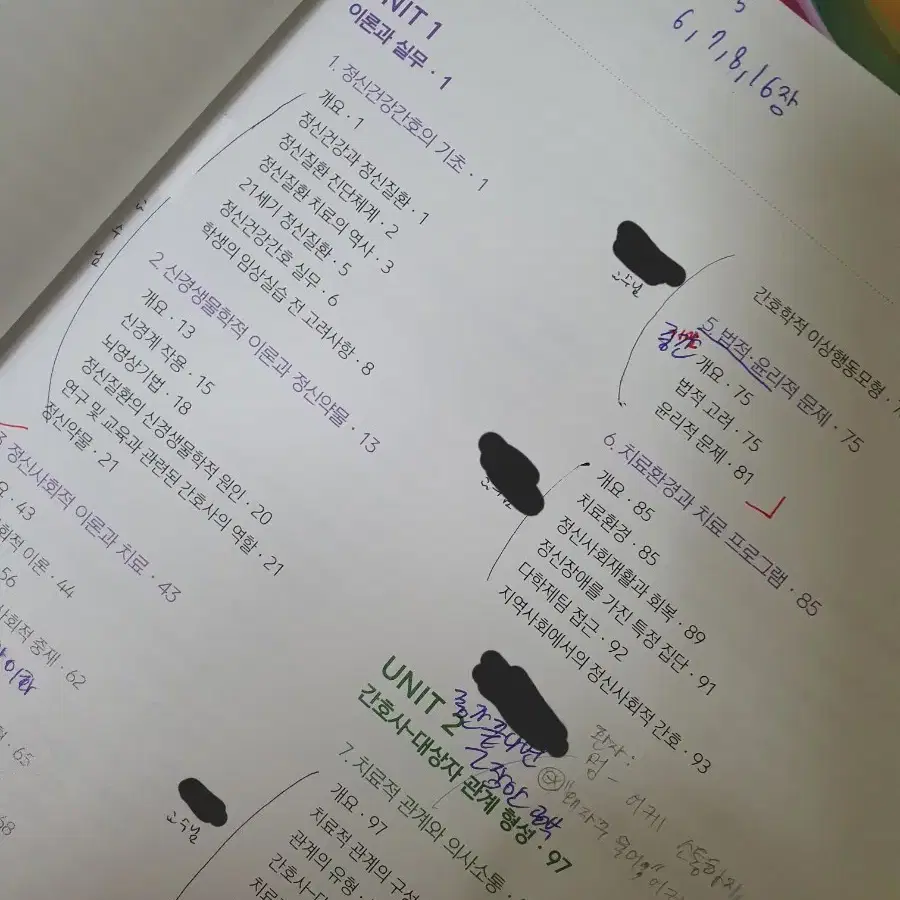 UNIT 1
이론과 실무 · 1
1. 정신건강간호의 기초 · 1
개요 · 1
정신건강과 정신질환 · 1
정신질환 진단체계 · 2
정신질환 치료의 역사 · 3
21세기 정신질환 · 5
정신건강간호 실무 · 6
학생의 임상실습 전 고려사항 · 8
2. 신경생물학적 이론과 정신약물 · 13
개요 · 13
신경계 작용 · 15
뇌영상기법 · 18
정신질환의 신경생물학적 원인 · 20
연구 및 교육과 관련된 간호사의 역할 · 21
정신약물 · 21
3. 정신사회적 이론과 치료 · 43
요 · 43
회적 이론 · 44
56
사회적 중재 · 62
65
68
6, 7, 8, 16장
간호학적 이상행동모형 · 7
5. 법적·윤리적 문제 · 75
개요 · 75
법적 고려 · 75
윤리적 문제 · 81
6. 치료환경과 치료 프로그램 · 85
개요 · 85
치료환경 · 85
정신사회재활과 회복 · 89
정신장애를 가진 특정 집단 · 91
다학제팀 접근 · 92
지역사회에서의 정신사회적 간호 · 93
UNIT 2
간호사-대상자 관계 형성 · 97
7. 치료적 관계와 의사소통 ·
개요 · 97
치료적 관계의 구성
관계의 유형
간호사-대
치료
교수님
교수님
환자: